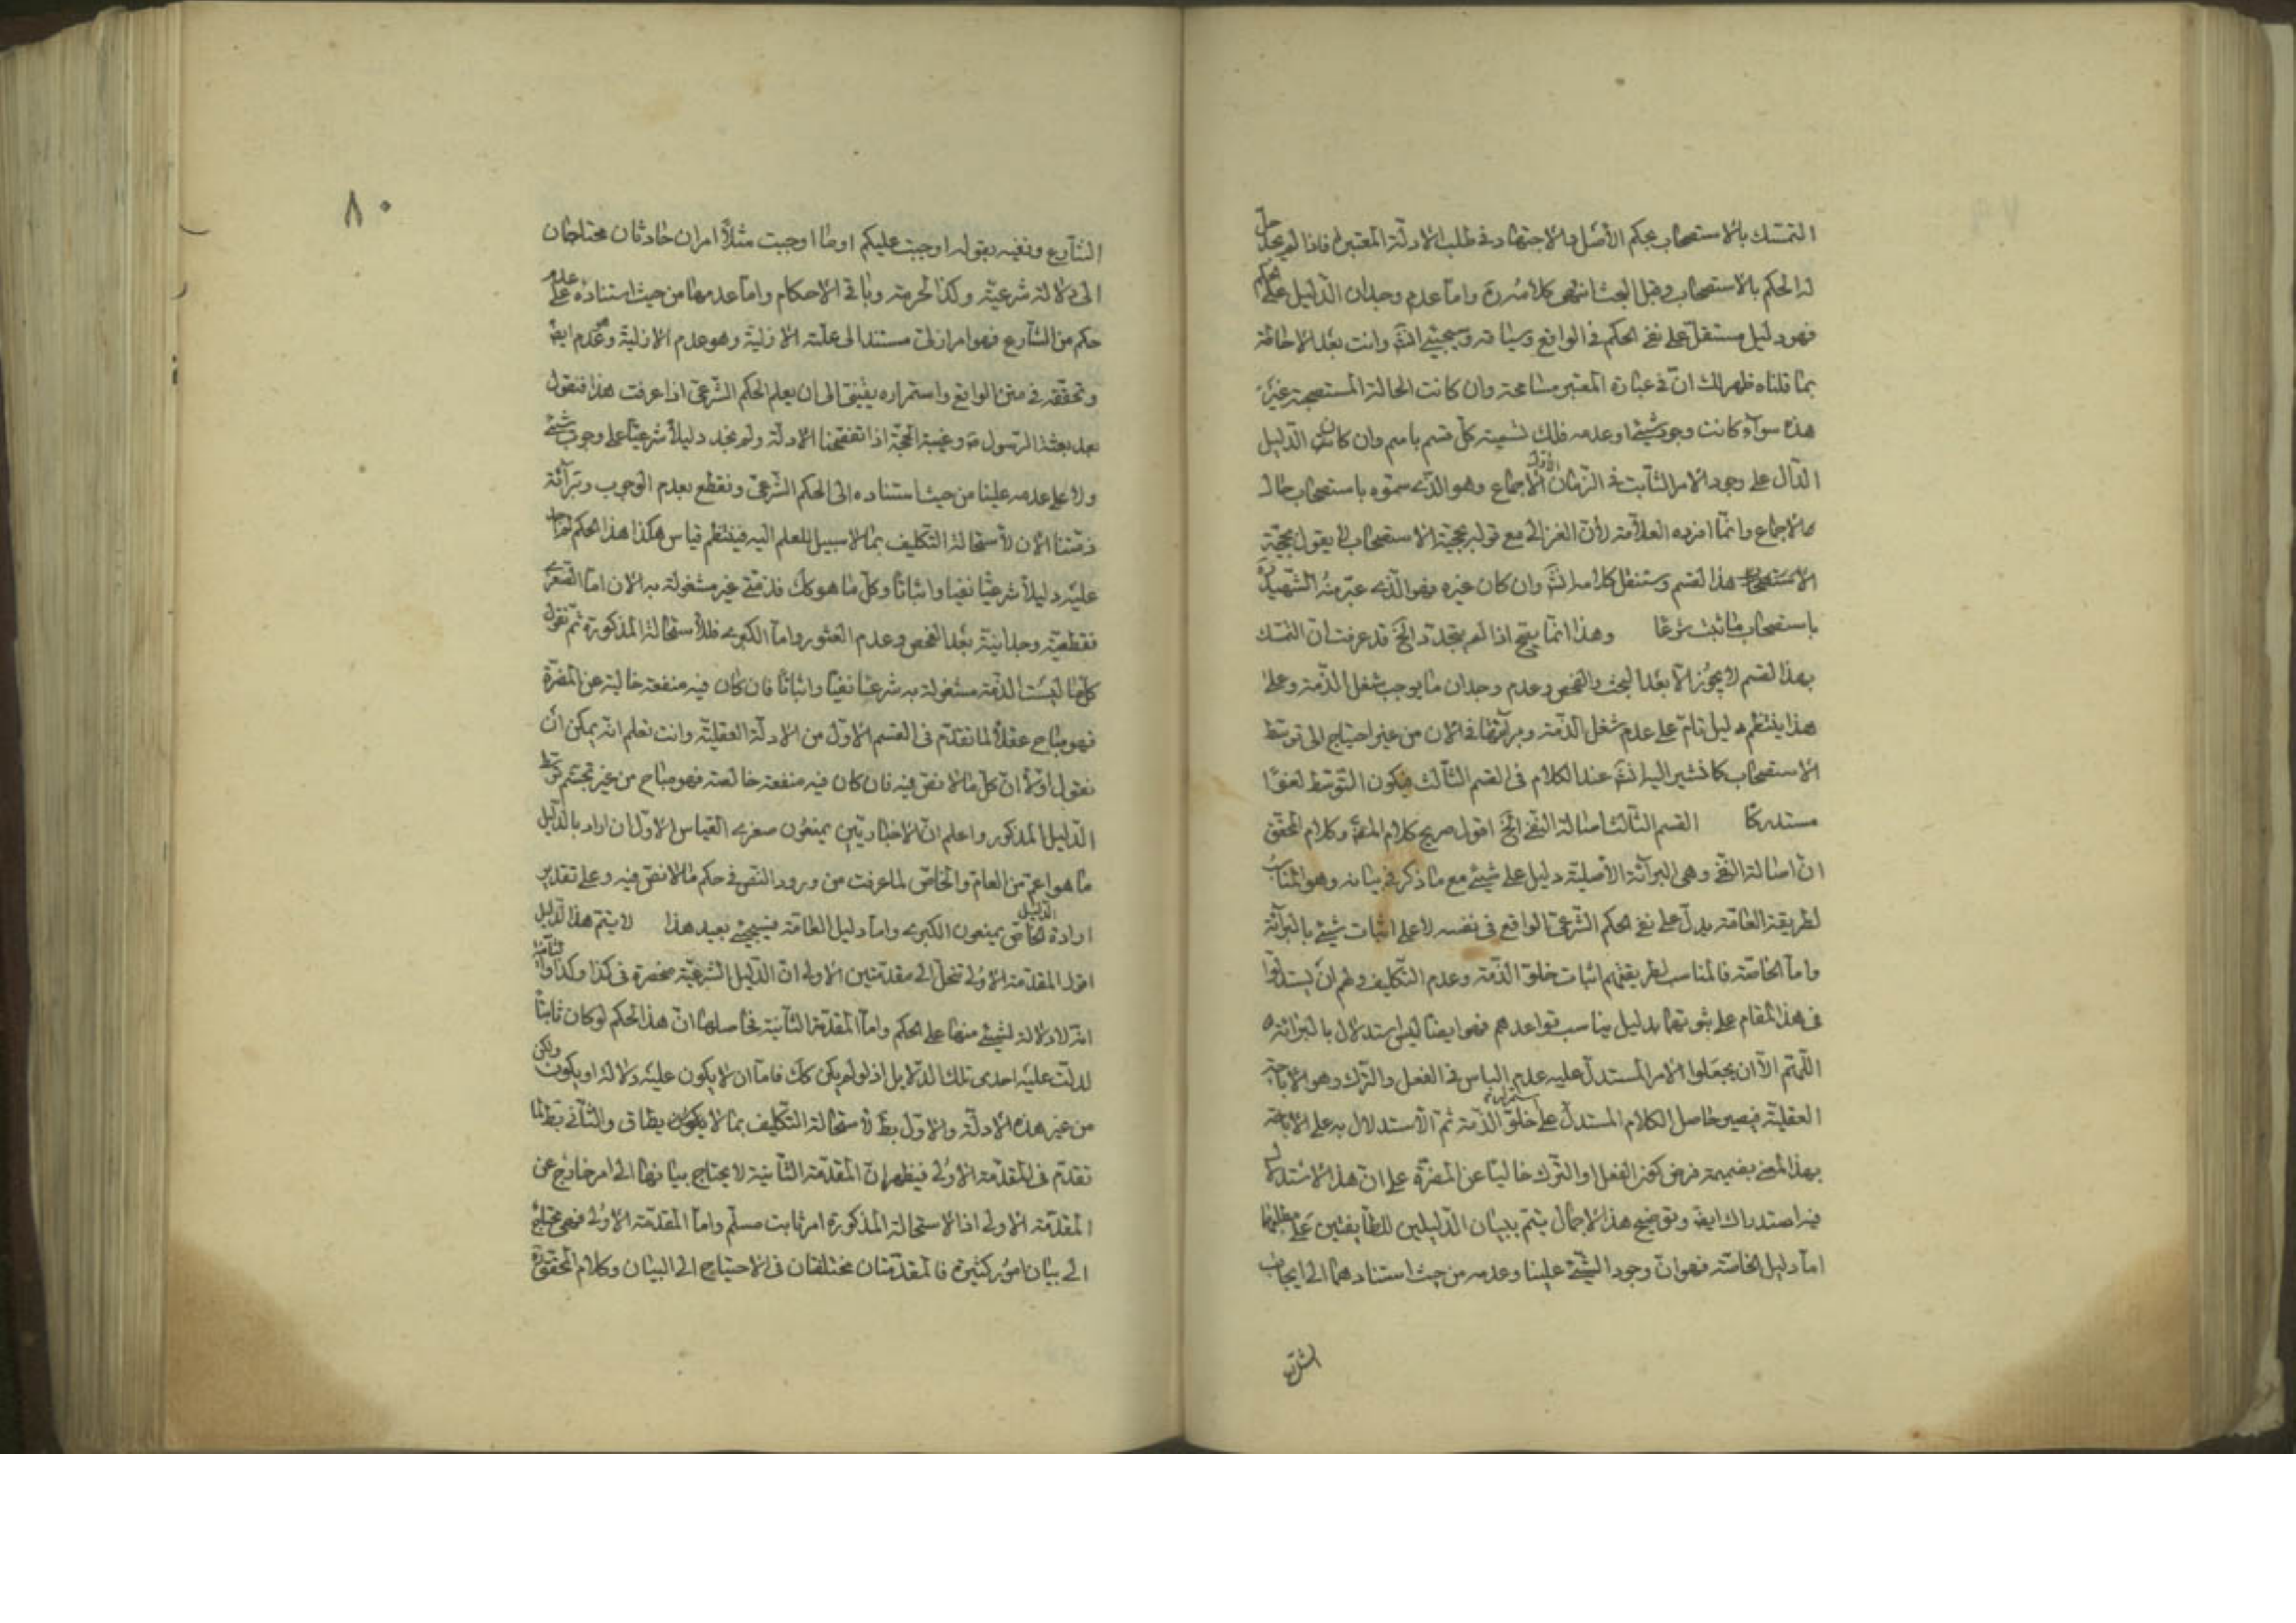 التمسك بالاستصحاب بحكم الأصل والاجتهاد في طلب الادلة المعتبرة فاذا لم يجد حل
له الحكم بالاستصحاب وقبل البحث انتهى كلامه ره واما عدم وجدان الدليل على الحكم
فهو دليل مستقل على نفى الحكم فى الواقع وبيانه وسيجيئ انش وانت بعد الاحاطة
بما قلناه ظهر لك انّ فى عبارة المعتبر مسامحة وان كانت الحالة المستصحبة غير
هذه سوآء كانت وجود شيئ او عدمه فلك تسمية كلّ قسم باسم وان كان الدليل
الدآل على وجود الامر الثابت فى الزمان الأول الاجماع وهو الذى سمّوه باستصحاب حال
الاجماع وانما افرده العلامة لأن الغزالى مع قوله بحجية الاستصحاب لا يقول بحجية
الاستصحاب هذا القسم وستنقل كلامه انش وان كان غيره فهو الذى عبّر منه الشهيد ره
باستصحاب ما ثبت شرعًا وهذا انما يتجّ اذا لم يتجدد الخ قد عرفت ان التمسك
بهذا القسم لا يجوز الا بعد البحث والفحص وعدم وجدان ما يوجب شغل الذمة وعلى
هذا ينتظم دليل تام على عدم شغل الذمة وبرآئتها فى الان من غير احتياج الى توسّط
الاستصحاب كما نشير اليه انش عند الكلام فى القسم الثالث فيكون التوسّط لغوًا
مستدركا القسم الثالث اصالة النفى الخ اقول صريح كلام المص وكلام المحقق
ان اصالة النفى وهى البرآئة الأصلية دليل على شيئ مع ما ذكر فى بيانه وهو المناسب
لطريقة العامّة يدلّ على نفى الحكم الشرعى الواقع فى نفسه لا على اثبات شيئ بالبرآئة
واما الخاصّة فالمناسب لطريقتهم اثبات خلوّ الذمّة وعدم التكليف ولهم ان يستدلوا
فى هذا المقام على ثبوتها بدليل يناسب قواعدهم فهو ايضا ليس استدلال بالبرائة
اللّهمّ الا ان يجعلوا الامر المستدلّ عليه عدم الباس فى الفعل والترك وهو الاباحة
العقليّة فيصير حاصل الكلام المستدل على خلوّ الذمّة ثمّ الاستدلال به على الاباحة
بهذا المعنى بضميمة فرض كون الفعل او الترك خاليًا عن المضرّة على ان هذا الاستدلال
فيه استدراك ايض وتوضيح هذا الاجمال يتم ببيان الدليلين للطايفتين على مطلبهما
امّا دليل الخاصّة فهو انّ وجود الشيئ علينا وعدمه من حيث استنادهما الى ايجاب
الشارع
٨٠
الشارع ونفيه بقوله اوجبت عليكم او ما اوجبت مثلاً امران حادثان محتاجان
الى دلالة شرعيّة وكذا الحرمة وباقى الاحكام واما عدمها من حيث استناده على عدم
حكم من الشارع فهو امر ازلى مستند الى علته الازلية وهو عدم الازلية وعدم ايض
وتحققه فى متن الواقع واستمراره يقينى الى ان يعلم الحكم الشرعى اذا عرفت هذا فنقول
بعد بعثة الرّسول ص وغيبة الحجّة اذا تفحّصنا الادلة ولم نجد دليلاً شرعيًا على وجوب شيئ
ولا على عدمه علينا من حيث استناده الى الحكم الشرعى ونقطع بعدم الوجوب وبرآئة
ذمّتنا الان لأستحالة التكليف بما لا سبيل للعلم اليه فينتظم قياس هكذا هذا الحكم لم نجد
عليه دليلاً شرعيًا نفيا واثباتا وكلّ ما هو كك فذمتى غير مشغولة به الان امّا الصغرى
فقطعيّة وجدانيّة بعد الفحص وعدم العثور وامّا الكبرى فللأستحالة المذكورة ثمّ نقول
كلّما ليست الذمّة مشغولة به شرعًا نفيًا واثباتًا فان كان فيه منفعة خالية عن المضرّة
فهو مباح عقلاً لما تقدّم فى القسم الاوّل من الادلّة العقليّة وانت تعلم انه يمكن ان
نقول اوّلاً انّ كلّ ما لا نصّ فيه فان كان فيه منفعة خالصة فهو مباح من غير تجشّم توسّط
الدّليل المذكور واعلم انّ الاخباريّين يمنعون صغرى القياس الاوّل ان اراد بالدّليل
ما هو اعمّ من العام والخاصّ لما عرفت من ورود النصّ فى حكم ما لا نصّ فيه وعلى تقدير
ارادة الدليل الخاصّ يمنعون الكبرى وامّا دليل العامّة فيسيجيئ بعيد هذا لا يتمّ هذا الدّليل
اقول المقدّمة الاولى تنحلّ الى مقدّمتين الاولى انّ الدليل الشّرعيّة منحصرة فى كذا وكذا
انّه لا دلالة لشيئ منها على الحكم وامّا المقدّمة الثّانية فحاصلها انّ هذا الحكم لو كان ثابتًا
لدلّت عليه احدى تلك الدّلايل اذ لو لم يكن كك فامّا ان لا يكون عليه دلالة او يكون ولكن
من غير هذه الادلّة والاوّل بط لأستحالة التكليف بما لا يطاق والثّانى بط لما
تقدّم فى المقدّمة الاولى فيظهر انّ المقدّمة الثّانية لا يحتاج بيانها الى امر خارج عن
المقدّمة الاولى اذ الاستحالة المذكورة امر ثابت مسلّم وامّا المقدّمة الاولى فهى محتاج
الى بيان امور كثيرة فالمقدّمتان مختلفتان فى الاحتياج الى البيان وكلام المحقّق